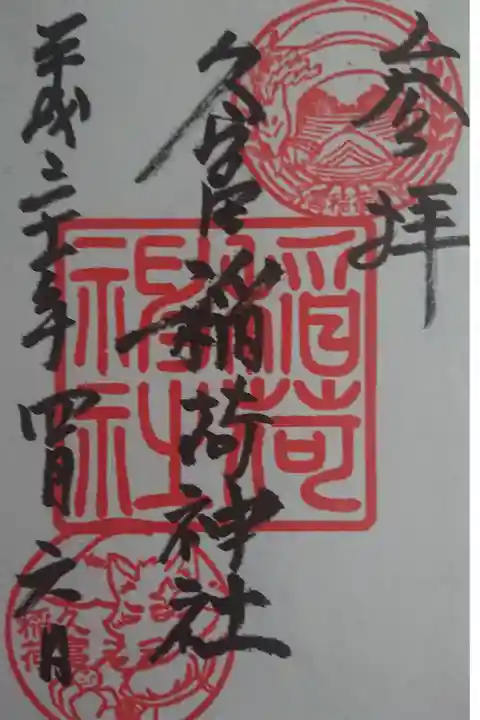 参拝
久富稲荷神社
平成三十年四月六日
稲荷
神社
久富
稲荷